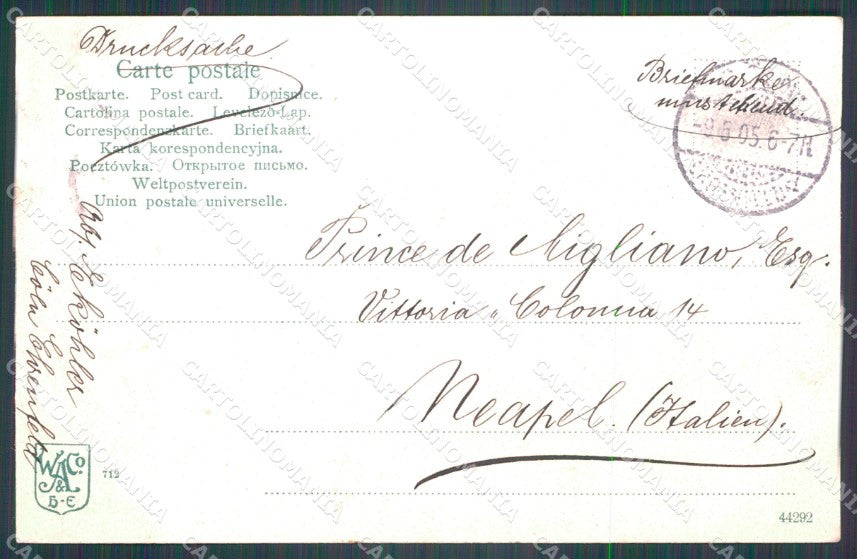 Drucksache.
Carte postale
Postkarte. Post card. Dopisnice.
Cartolina postale. Levelező-Lap.
Correspondenzkarte. Briefkaart.
Karta korespondencyjna.
Pocztówka. Открытое письмо.
Weltpostverein.
Union postale universelle.
Briefmarke
umstehend.
-9.6.05.6-7N
Prince de Migliano, Esq.
Vittoria Colonna 14
Neapel. (Italien).
Abs. E. Köhler
Cöln Ehrenfeld
W A Co
& L
B-E
44292
CARTOLINOMANIA